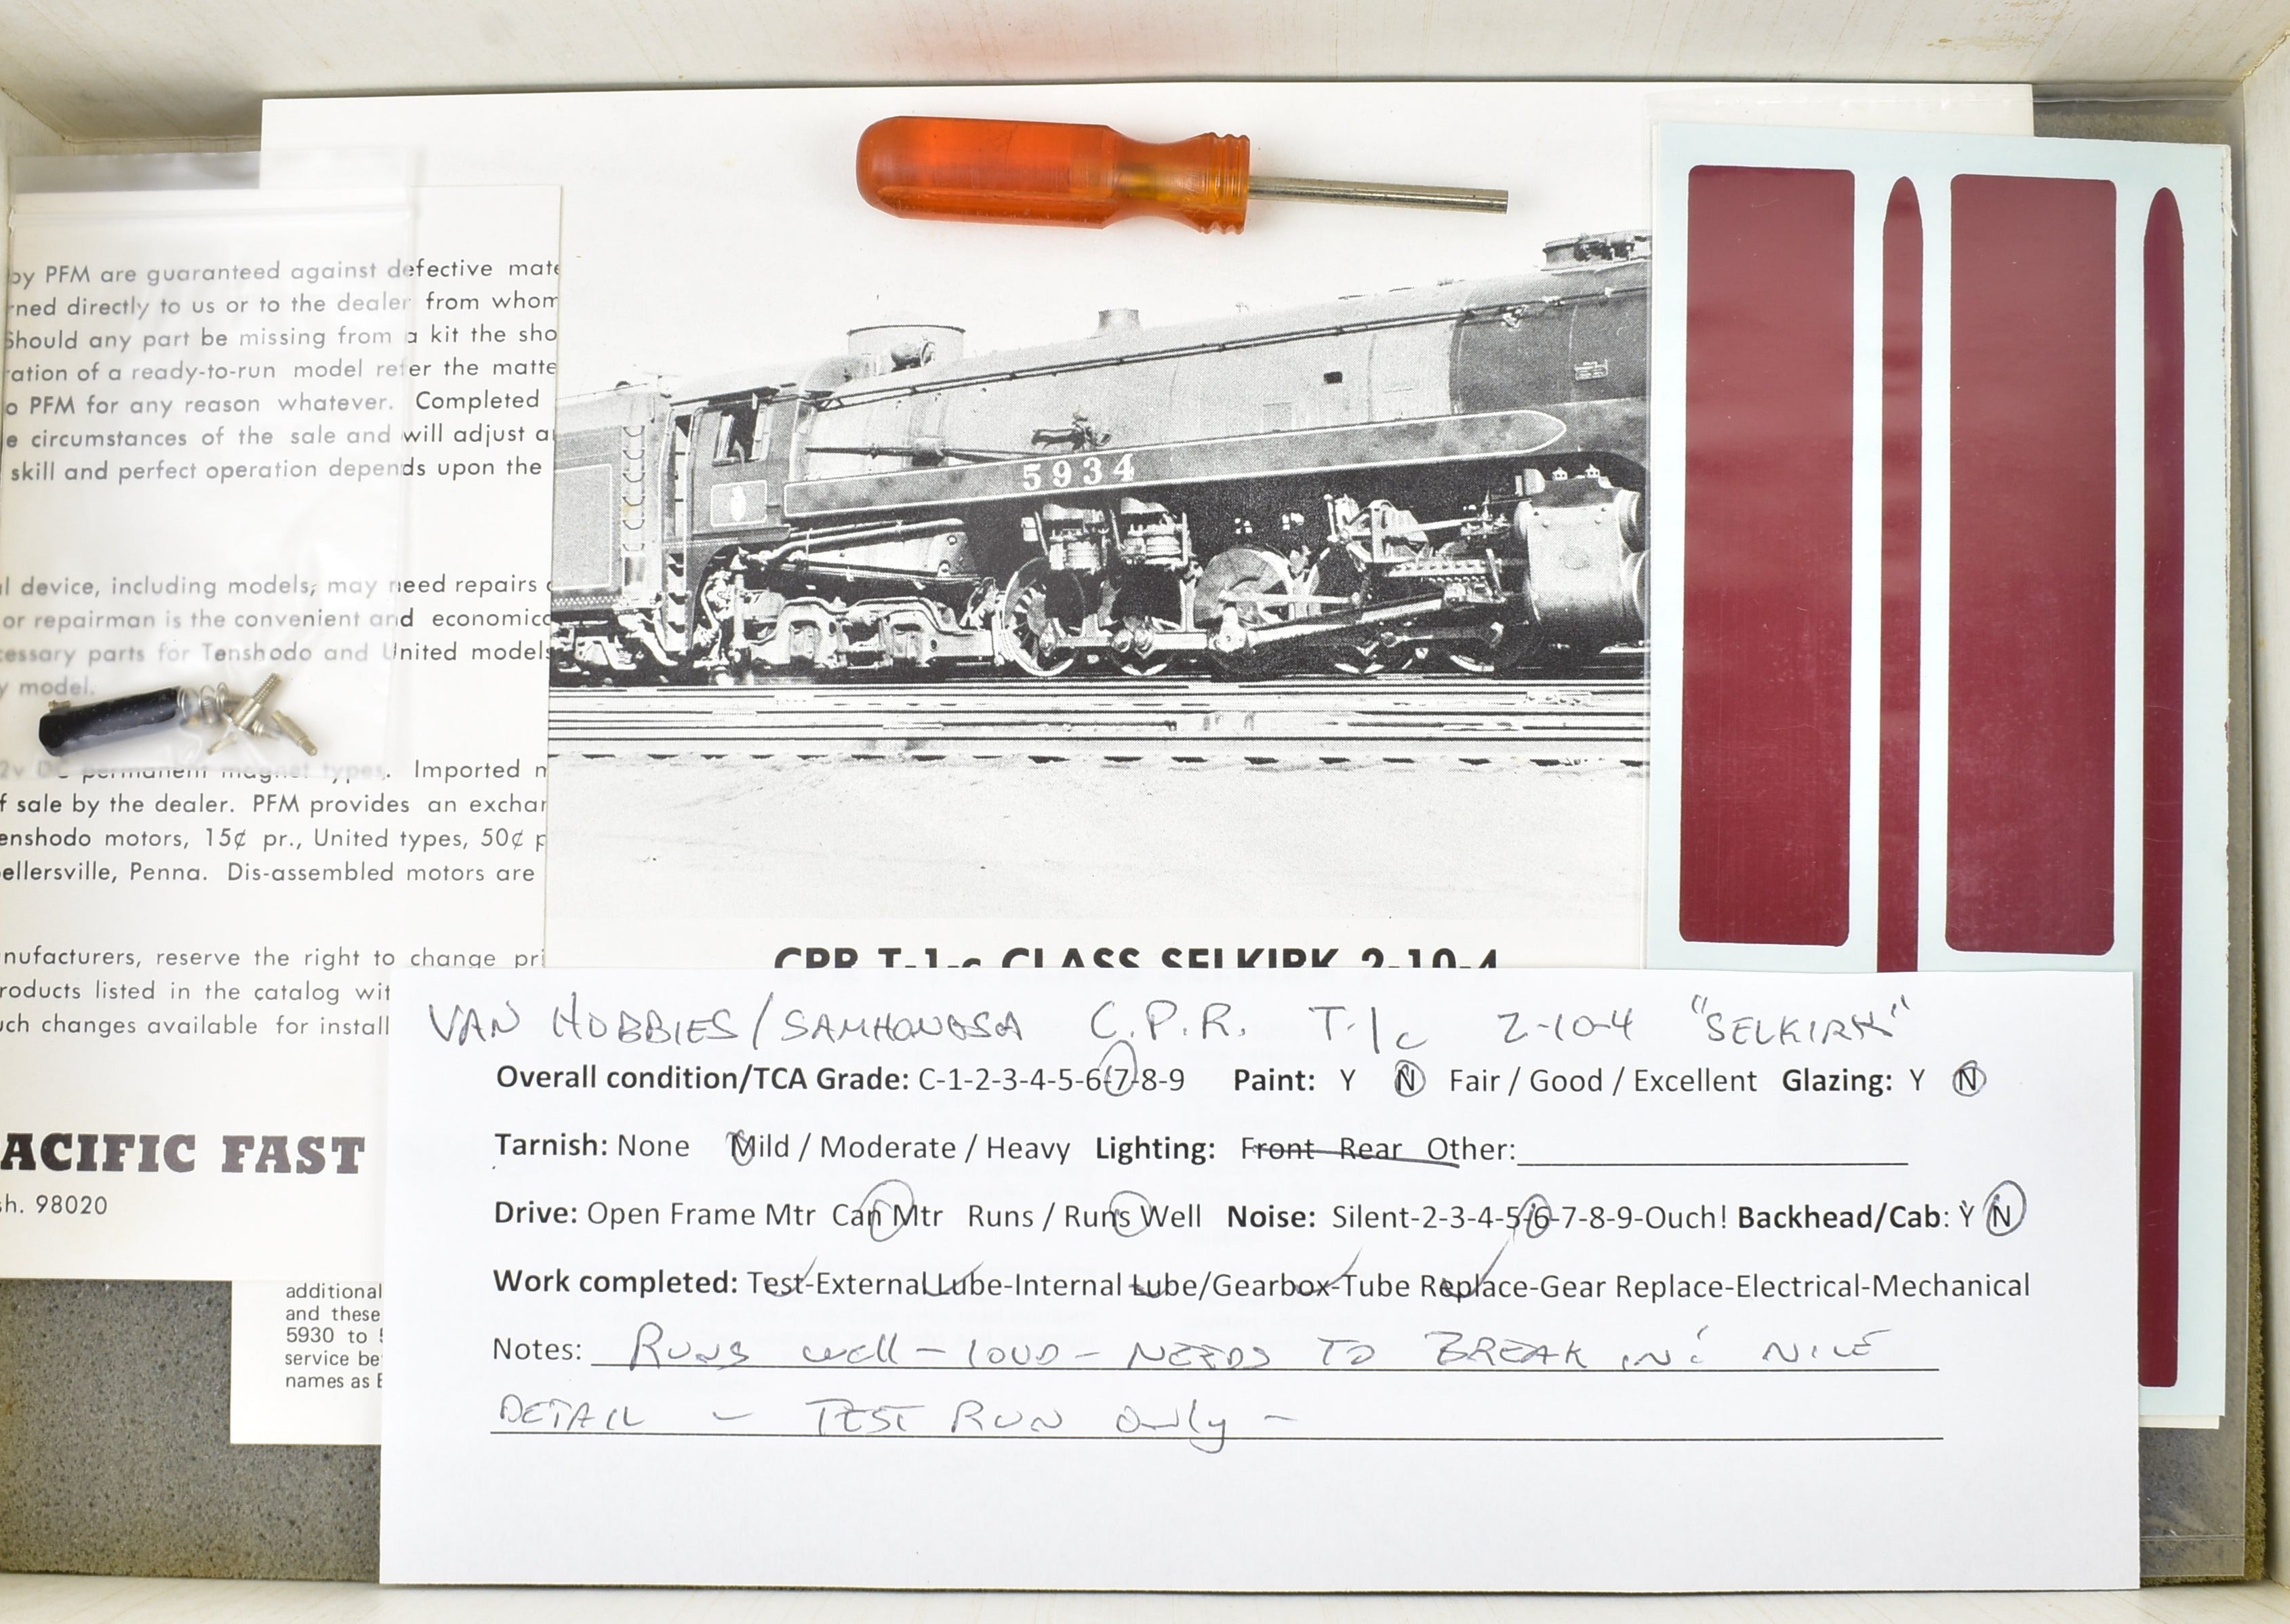 by PFM are guaranteed against defective mate
rned directly to us or to the dealer from whom
Should any part be missing from a kit the sho
ration of a ready-to-run model refer the matte
o PFM for any reason whatever. Completed
e circumstances of the sale and will adjust a
skill and perfect operation depends upon the
l device, including models, may need repairs
or repairman is the convenient and economic
cessary parts for Tenshodo and United models
y model.
2v DC permanent magnet types. Imported
f sale by the dealer. PFM provides an exchan
enshodo motors, 15¢ pr., United types, 50¢ p
ellersville, Penna. Dis-assembled motors are
nufacturers, reserve the right to change pri
roducts listed in the catalog wit
uch changes available for install
ACIFIC FAST
sh. 98020
additional
and these
5930 to
service be
names as
5934
CPR T-1-c CLASS SELKIRK 2-10-4
VAN HOBBIES/SAMHONGSA C.P.R. T-1c 2-10-4 "SELKIRK"
Overall condition/TCA Grade: C-1-2-3-4-5-6-7-8-9 Paint: Y N Fair / Good / Excellent Glazing: Y N
Tarnish: None Mild / Moderate / Heavy Lighting: Front Rear Other:
Drive: Open Frame Mtr Can Mtr Runs / Runs Well Noise: Silent-2-3-4-5-6-7-8-9-Ouch! Backhead/Cab: Y N
Work completed: Test-External Lube-Internal Lube/Gearbox-Tube Replace-Gear Replace-Electrical-Mechanical
Notes: RUNS well - LOUD - NEEDS TO BREAK IN! NICE
DETAIL - TEST RUN only -